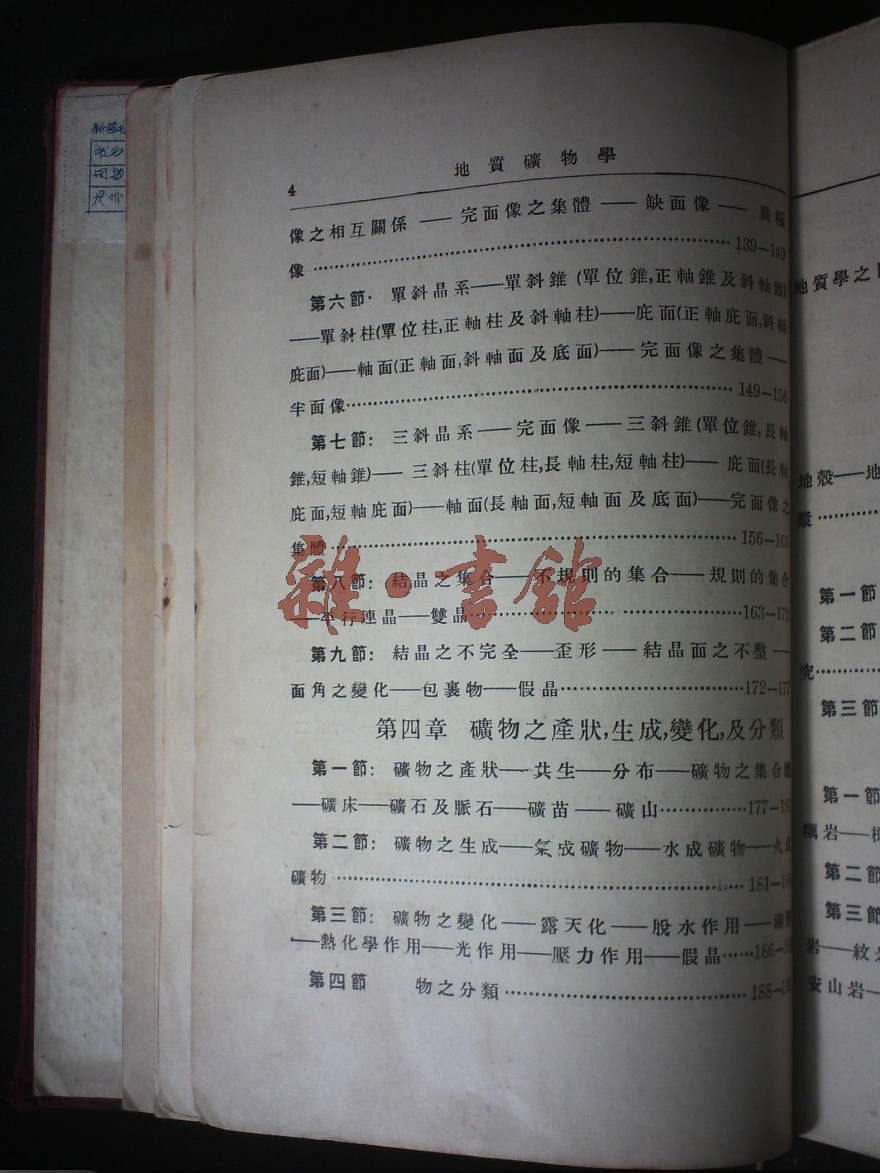 4
地質礦物學
像之相互關係——完面像之集體——缺面像——異極
像……139—149
第六節: 單斜晶系——單斜錐(單位錐,正軸錐及斜軸錐)
——單斜柱(單位柱,正軸柱及斜軸柱)——庇面(正軸庇面,斜軸
庇面)——軸面(正軸面,斜軸面及底面)——完面像之集體——
半面像……149—156
第七節: 三斜晶系——完面像——三斜錐(單位錐,長軸
錐,短軸錐)——三斜柱(單位柱,長軸柱,短軸柱)——庇面(長軸
庇面,短軸庇面)——軸面(長軸面,短軸面及底面)——完面像之
集體……156—163
第八節: 結晶之集合——不規則的集合——規則的集合
——平行連晶——雙晶……163—172
第九節: 結晶之不完全——歪形——結晶面之不整——
面角之變化——包裹物——假晶……172—177
第四章 礦物之產狀,生成,變化,及分類
第一節: 礦物之產狀——共生——分布——礦物之集合體
——礦床——礦石及脈石——礦苗——礦山……177—
第二節: 礦物之生成——氣成礦物——水成礦物——火成
礦物……181—
第三節: 礦物之變化——露天化——脫水作用——
——熱化學作用——光作用——壓力作用——假晶……186—
第四節 物之分類……188—
雜·書館
书名
册数
定价
地質學之
地殼——地
漿……
第一節
第二節
究……
第三節
第一節
岩——
第二節
第三節
岩——紋岩
安山岩—